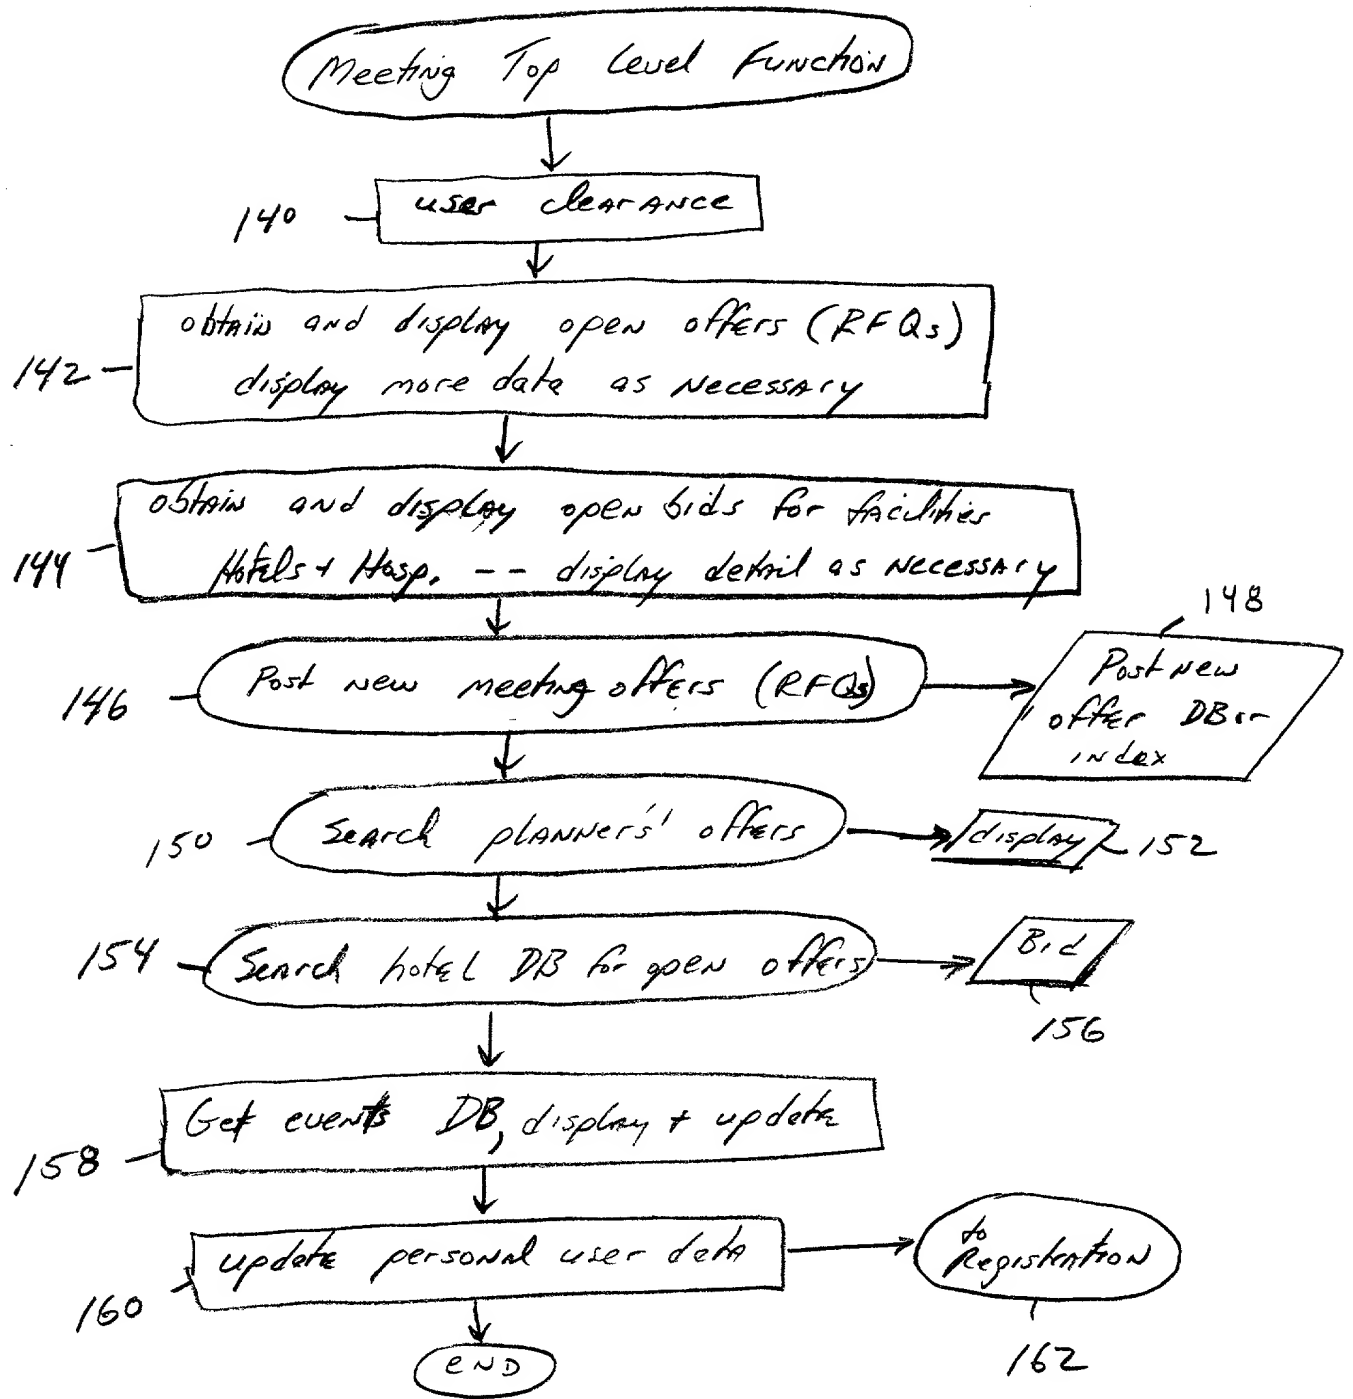 Meeting Top Level Function
140
user clearance
obtain and display open offers (RFQs)
142
display more data as necessary
obtain and display open bids for facilities
144
Hotels + Hosp. -- display detail as necessary
148
146
Post new meeting offers (RFQs)
Post new
offer DB or
index
150
Search planners' offers
display
152
154
Search hotel DB for open offers
Bid
156
158
Get events DB, display + update
160
update personal user data
to
Registration
162
END